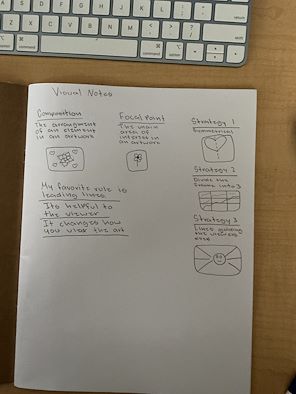 Visual Notes
Composition
The arrangment
of an element
in an artwork
Focal Point
The main
area of
interest in
an artwork
Strategy 1
Symmetrical
Strategy 2
Divide the
frame into 3
Strategy 3
Lines guiding
the viewers
eyes
My favorite rule is
leading lines
Its helpful to
the viewer
It changes how
you view the art
A S D F G H J K L
return
Z X C V B N M
shift
command
option
control